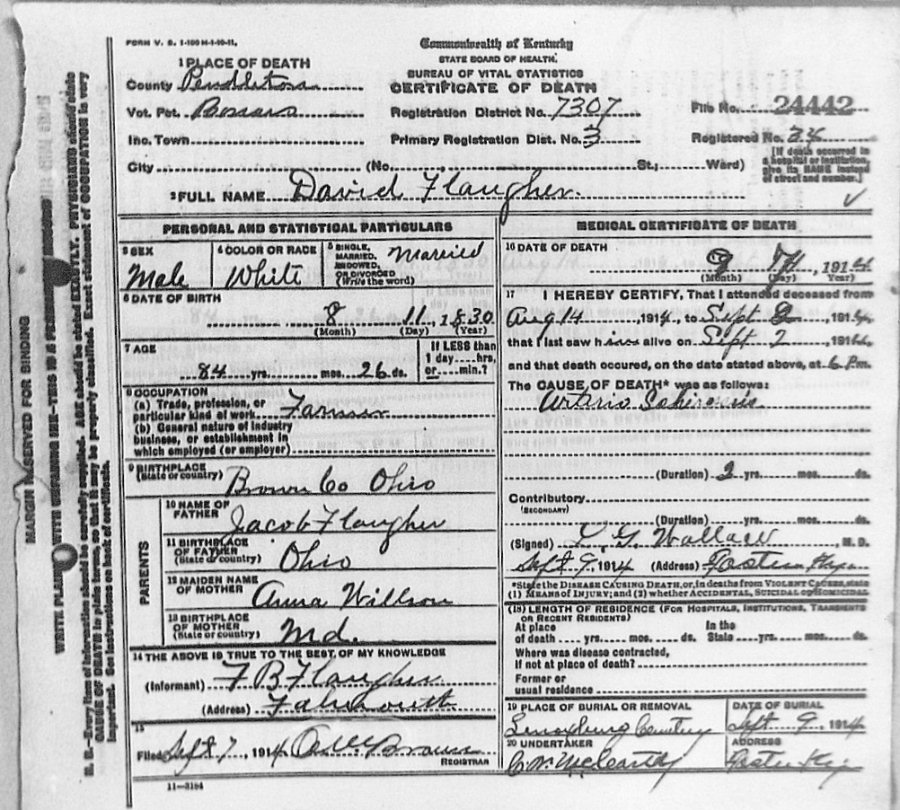 FORM V. S. 1-100 M-1-10-11.
Commonwealth of Kentucky
STATE BOARD OF HEALTH.
BUREAU OF VITAL STATISTICS
CERTIFICATE OF DEATH
1 PLACE OF DEATH
County Pendleton
Vot. Pct.
Registration District No. 7307
File No. 24442
Inc. Town
Primary Registration Dist. No. 3
Registered No. 34
City (No. St.; Ward)
[If death occurred in a hospital or institution, give its NAME instead of street and number.]
2 FULL NAME David Flaugher
PERSONAL AND STATISTICAL PARTICULARS
3 SEX
Male
4 COLOR OR RACE
White
5 SINGLE, MARRIED, WIDOWED, OR DIVORCED (Write the word)
Married
6 DATE OF BIRTH
8 11, 1830
(Month) (Day) (Year)
7 AGE
84 yrs. mos. 26 ds.
If LESS than 1 day hrs. or min.?
8 OCCUPATION
(a) Trade, profession, or particular kind of work Farmer
(b) General nature of industry business, or establishment in which employed (or employer)
9 BIRTHPLACE
(State or country) Brown Co Ohio
PARENTS
10 NAME OF FATHER Jacob Flaugher
11 BIRTHPLACE OF FATHER (State or country) Ohio
12 MAIDEN NAME OF MOTHER Anna Willson
13 BIRTHPLACE OF MOTHER (State or country) Md.
14 THE ABOVE IS TRUE TO THE BEST OF MY KNOWLEDGE
(Informant) F B Flaugher
(Address) Falmouth
15
Filed Sept 7, 1914 Brown
REGISTRAR
11-3184
MEDICAL CERTIFICATE OF DEATH
16 DATE OF DEATH
9 , 1914
(Month) (Day) (Year)
17 I HEREBY CERTIFY, That I attended deceased from
Aug 14, 1914, to Sept 2, 1914,
that I last saw him alive on Sept 2, 1914,
and that death occured, on the date stated above, at 6 P.m.
The CAUSE OF DEATH* was as follows:
Arterio
(Duration) yrs. mos. ds.
Contributory
(SECONDARY)
(Duration) yrs. mos. ds.
(Signed) L G. Wallace, M. D.
Sept 7, 1914 (Address)
*State the DISEASE CAUSING DEATH, or, in deaths from VIOLENT CAUSES, state
(1) MEANS OF INJURY; and (2) whether ACCIDENTAL, SUICIDAL or HOMICIDAL
(18) LENGTH OF RESIDENCE (FOR HOSPITALS, INSTITUTIONS, TRANSIENTS OR RECENT RESIDENTS)
At place of death yrs. mos. ds. In the State yrs. mos. ds.
Where was disease contracted,
if not at place of death?
Former or
usual residence
19 PLACE OF BURIAL OR REMOVAL
Lenoxburg Cemetery
DATE OF BURIAL
Sept 9, 1914
20 UNDERTAKER
C. W. McCarty
ADDRESS
MARGIN RESERVED FOR BINDING
N. B.—Every item of information should be carefully supplied. AGE should be stated EXACTLY. PHYSICIANS should state
CAUSE OF DEATH in plain terms, so that it may be properly classified. Exact statement of OCCUPATION is very
important. See instructions on back of certificate.